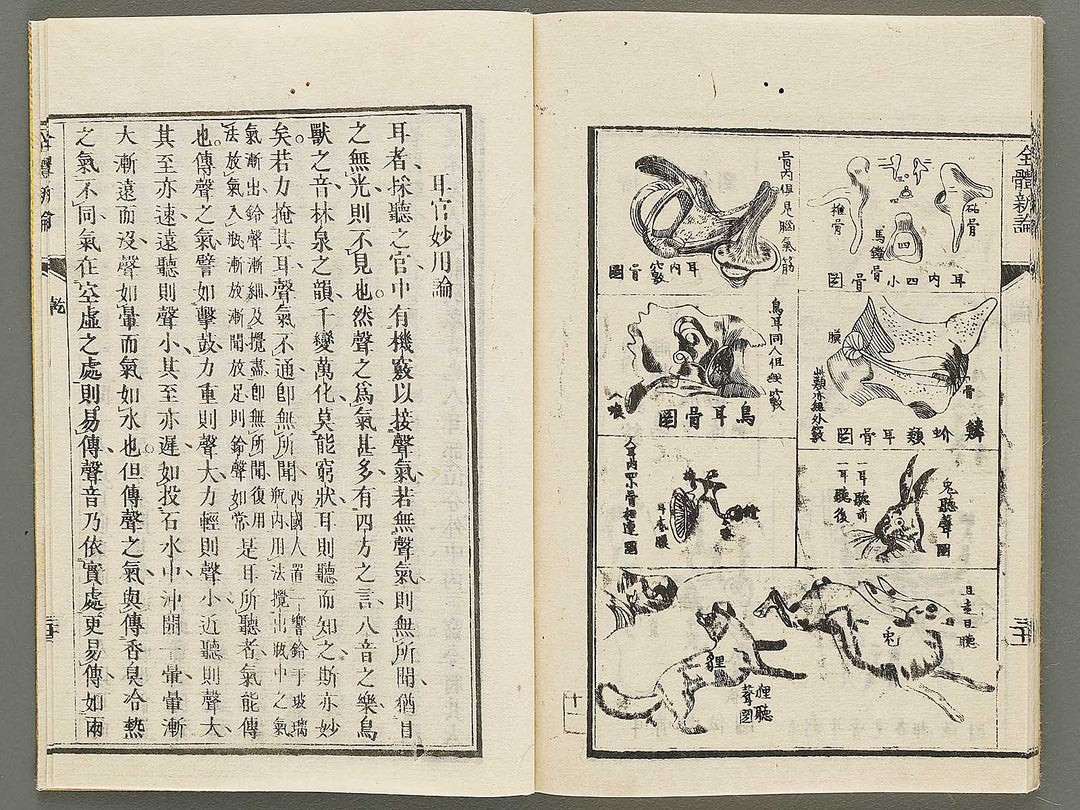 全體新論
耳內四小骨圖
砧骨
馬鐙骨
錐骨
骨內但見腦氣筋
耳內竅骨圖
鱗介類耳骨圖
骨
膜
此類亦無外竅
鳥耳同人但無竅
鳥耳骨圖
兔聽聲圖
一耳聽前
一耳聽後
人耳內四小骨相連圖
耳膜
且走且聽
兔
狸
狸聽聲圖
十一
耳官妙用論
耳者採聽之官中有機竅以接聲氣若無聲氣則無所聞猶目
之無光則不見也然聲之爲氣甚多有四方之言八音之樂鳥
獸之音林泉之韻千變萬化莫能窮狀耳則聽而知之斯亦妙
矣若力掩其耳聲氣不通卽無所聞西國人置一響鈴于玻璃瓶內用法攪出瓶中之氣
氣漸出鈴聲漸細及攪盡卽無所聞復用法放氣入瓶漸放漸聞放足則鈴聲如常是耳所聽者氣能傳
也傳聲之氣譬如擊鼓力重則聲大力輕則聲小近聽則聲大
其至亦速遠聽則聲小其至亦遲如投石水中沖開一暈暈漸
大漸遠而沒聲如暈而氣如水也但傳聲之氣與傳香臭冷熱
之氣不同氣在空虛之處則易傳聲音乃依實處更易傳如兩
全體新論
乾